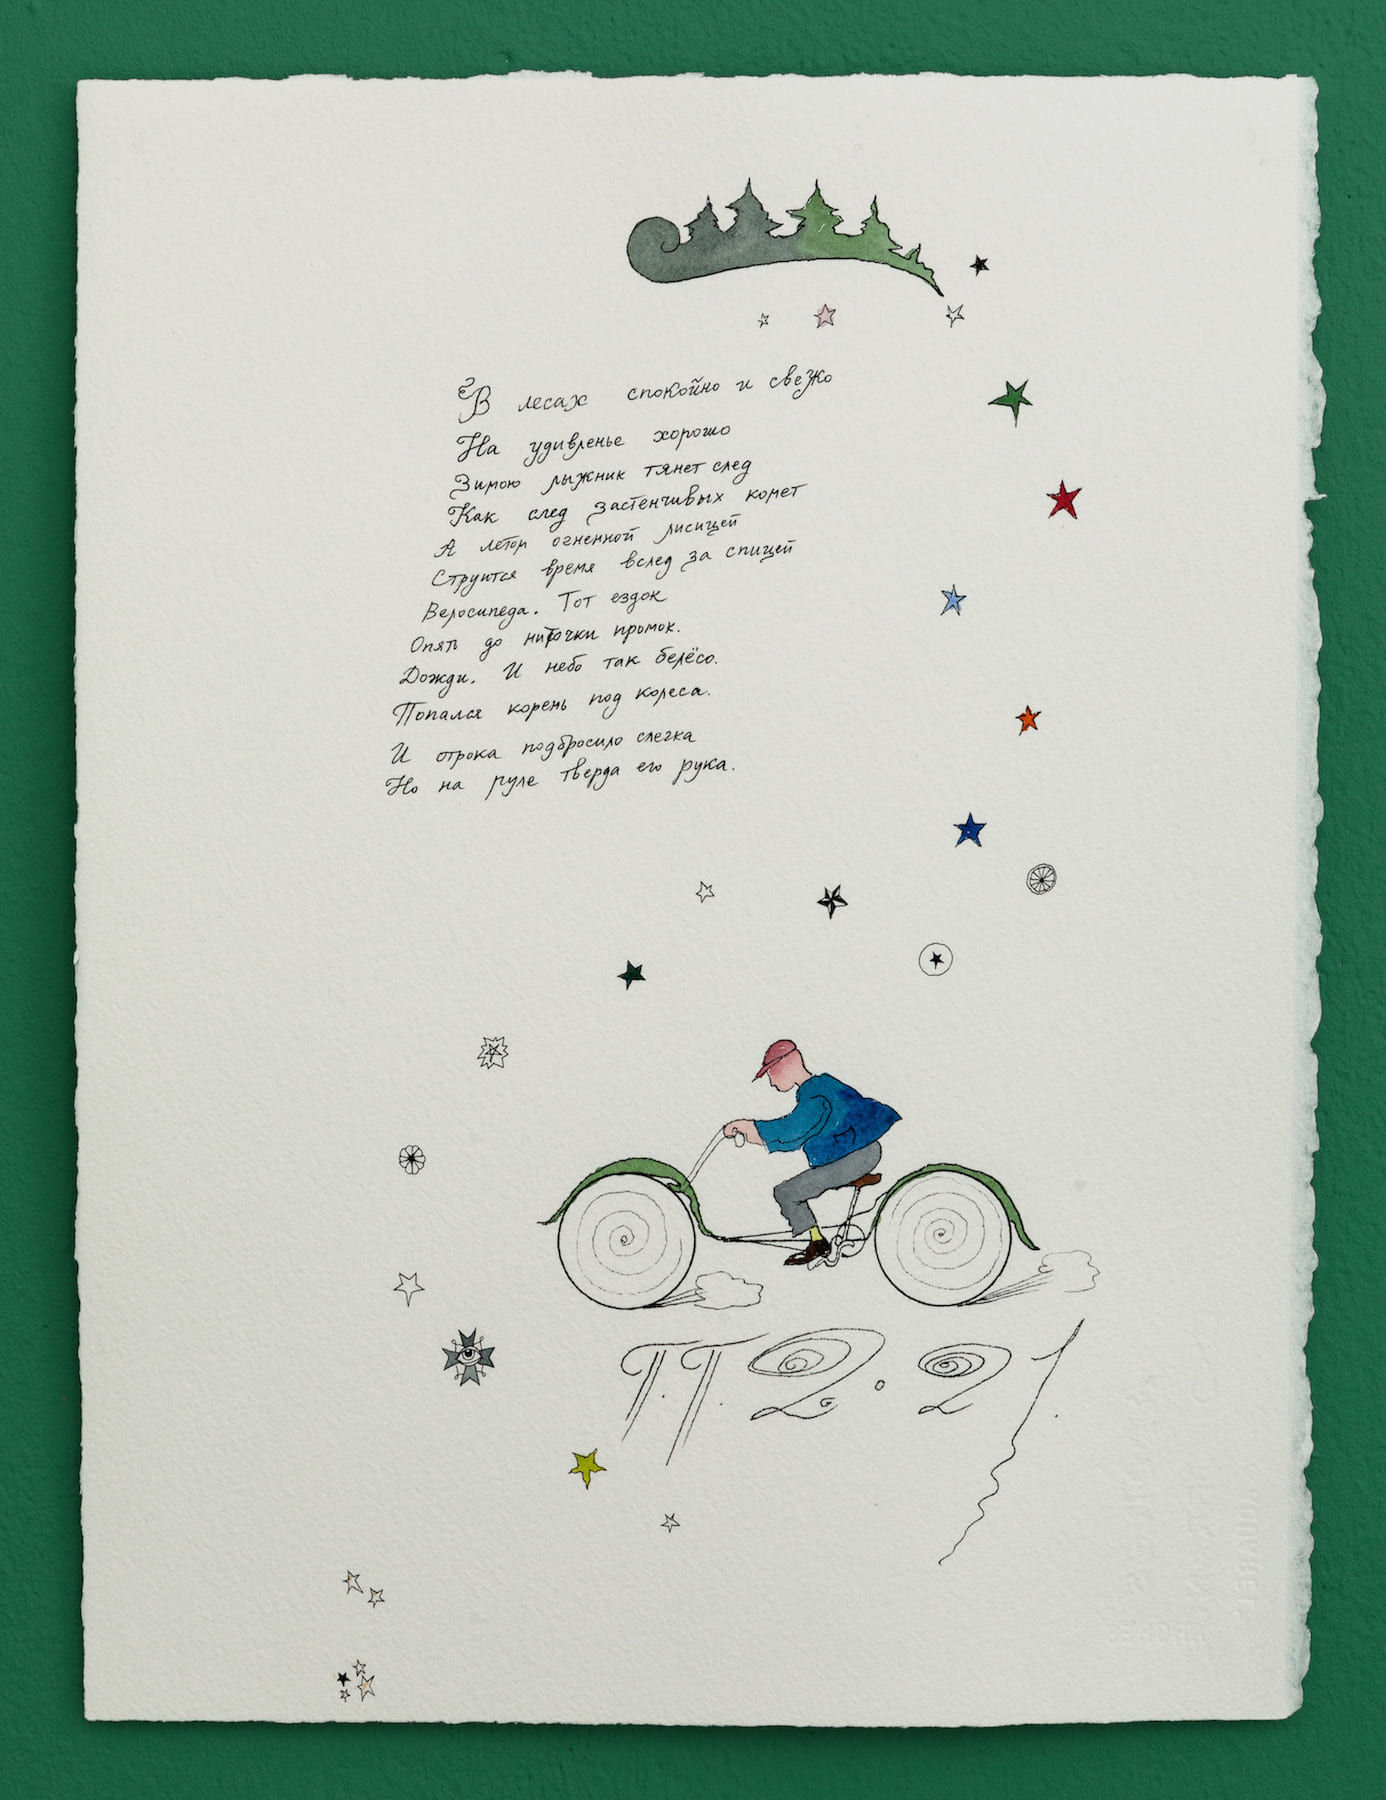 В лесах спокойно и свежо
На удивленье хорошо
Зимою лыжник тянет след
Как след застенчивых комет
А летом огненной лисицей
Струится время вслед за спицей
Велосипеда. Тот ездок
Опять до ниточки промок.
Дожди. И небо так белёсо.
Попался корень под колеса.
И отрока подбросило слегка
Но на руле тверда его рука.
П.П. 2.21
ARCHES